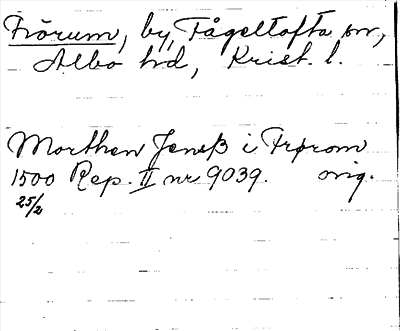 Frörum, by, Fågeltofta sn,
Albo hd, Krist. l.
Morthen Jenß i Frørom
1500 Rep. II nr 9039. orig.
25/2